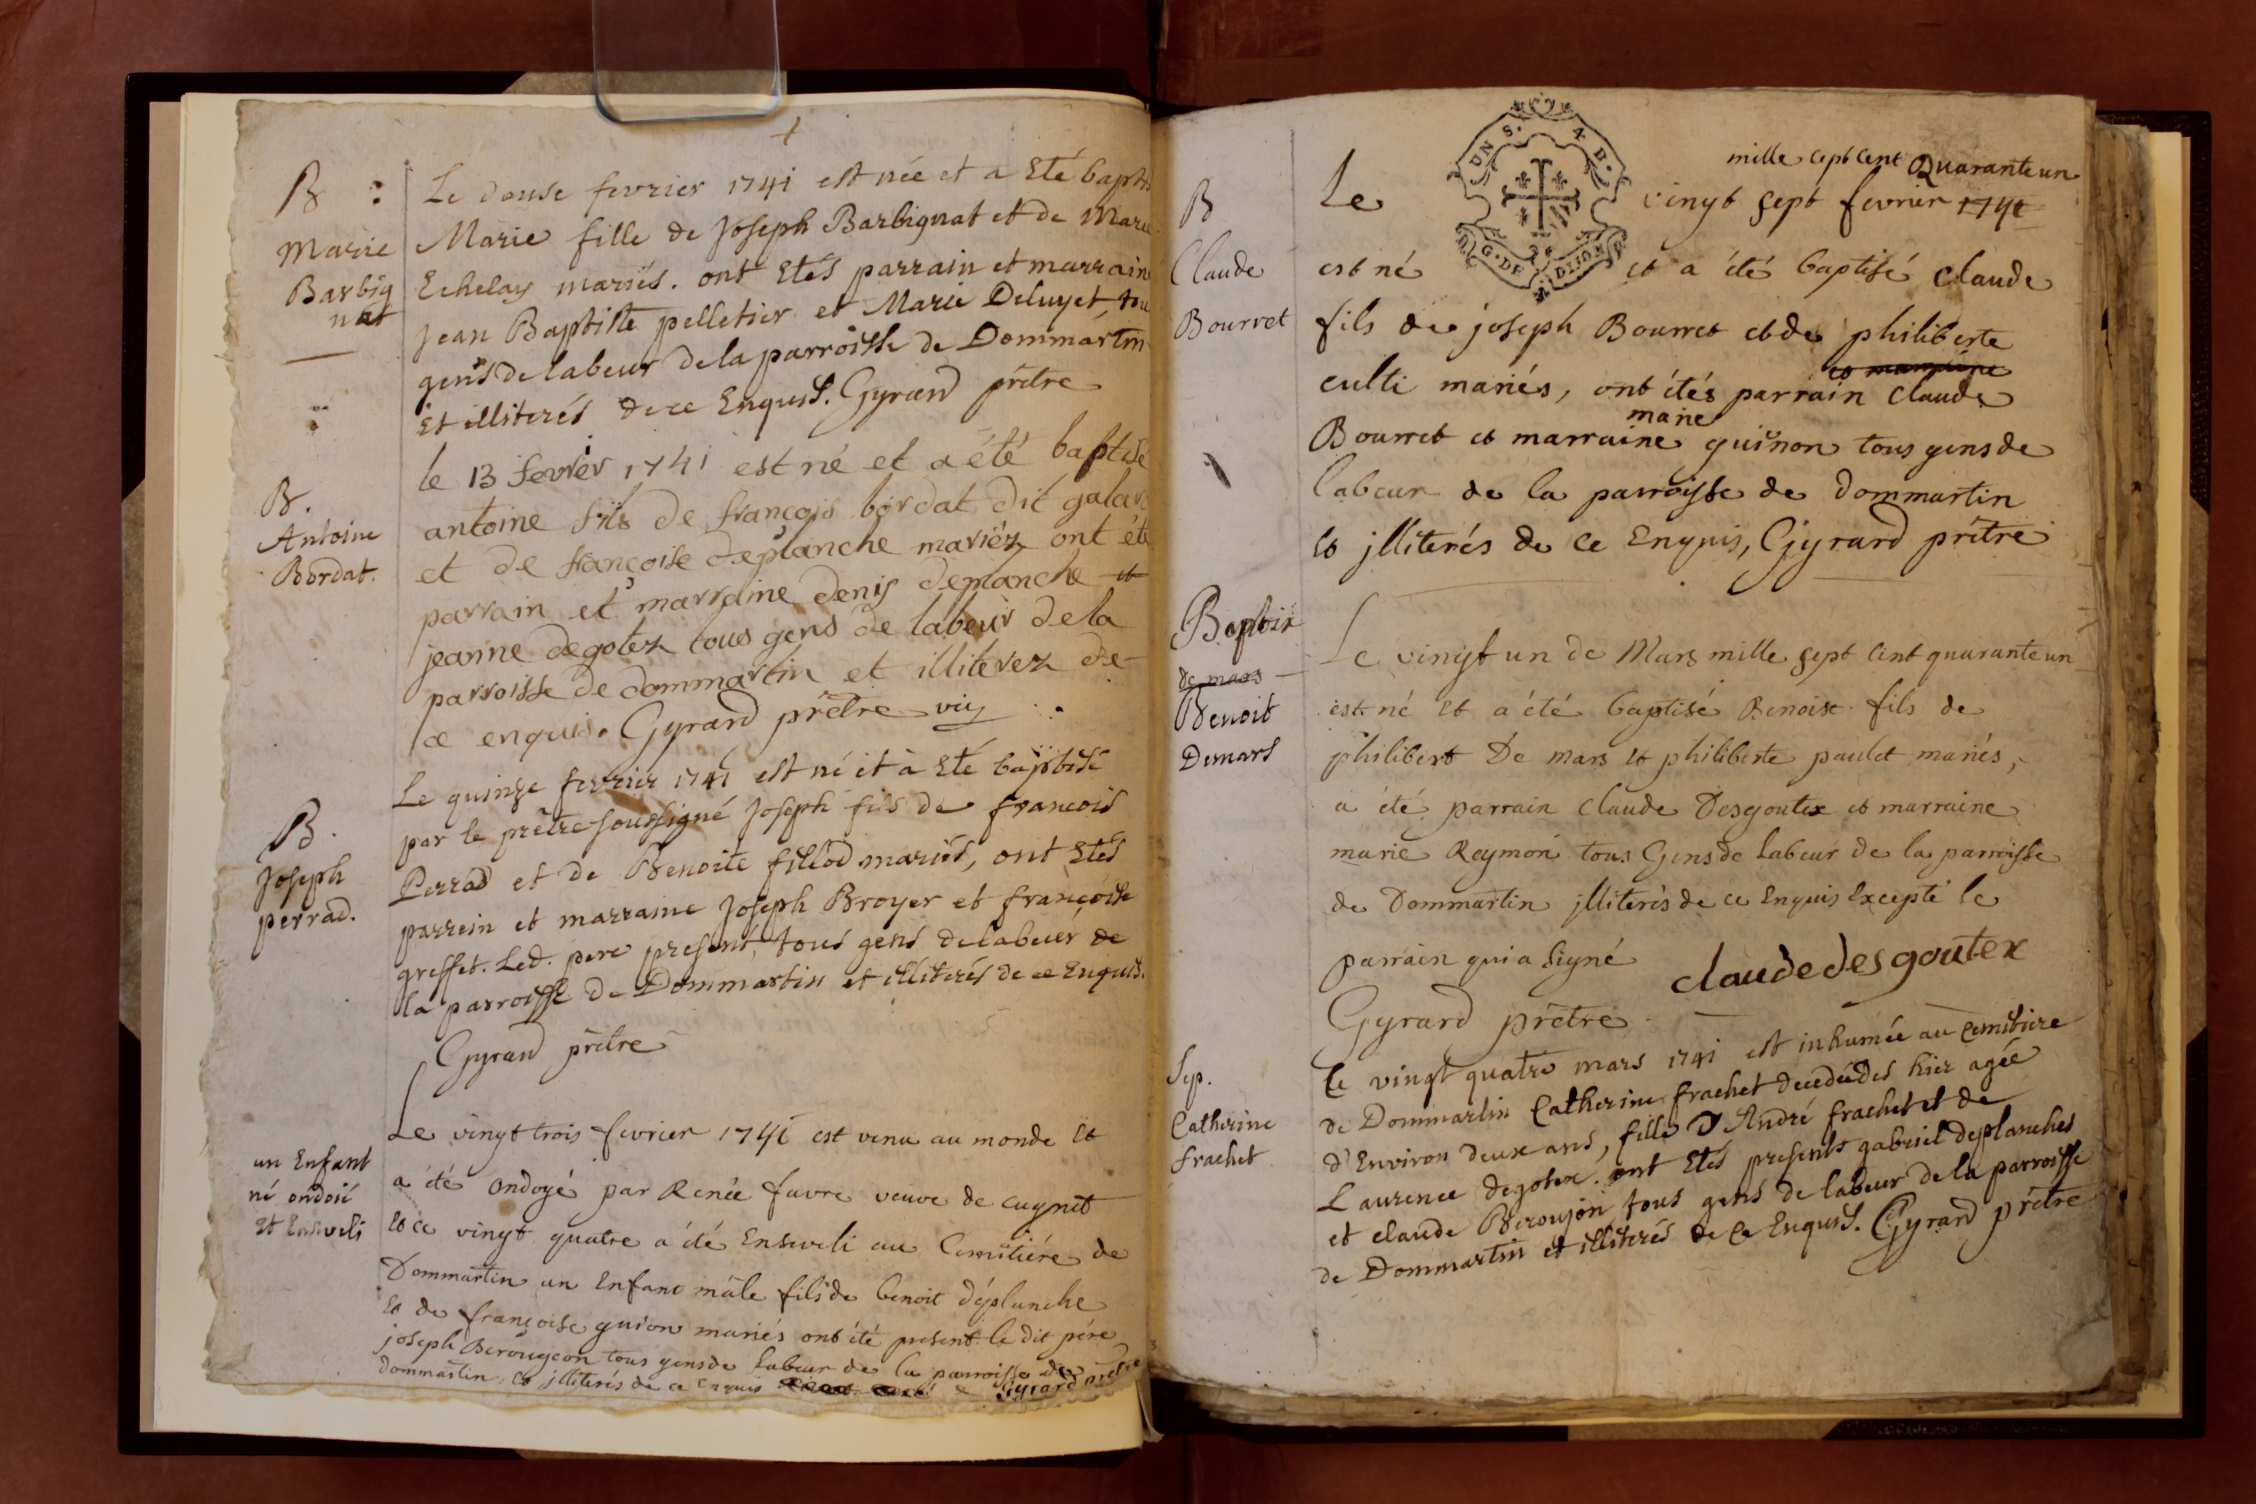 B :
Marie
Barbig
nat
Le douse fevrier 1741 est née et a Eté baptis
Marie fille de Joseph Barbignat et de Marie
Echelay mariés. ont Etés parrain et marraine
Jean Baptiste pelletier et Marie Deluyet, tou
gens de labeur de la parroisse de Dommartin
Et illiterés de ce Enquis. Gyrard prêtre
B.
Antoine
Bordat.
le 13 fevrier 1741 est né et a été baptisé
antoine fils de françois bordat dit galar
et de françoise deplanche mariéz ont été
parrain et marraine denis demanche et
jeanne degotez tous gens de labeur de la
parroisse de dommartin et illiterez de
ce enquis. Gyrard prêtre vic
B.
Joseph
perrad.
Le quinze fevrier 1741 est né et à Eté baptisé
par le prêtre soussigné Joseph fils de francois
Perrad et de Benoite fillod mariés, ont Etés
parrein et marraine Joseph Broyer et françoise
greffet. Led. pere present, tous gens de labeur de
la parroisse de Dommartin et illiterés de ce Enquis.
Gyrard prêtre
un Enfant
né ondoié
et Enseveli
Le vingt trois fevrier 1741 est venu au monde et
a été ondoyé par Renée favre veuve de cugnet
et ce vingt quatre a été Enseveli au Cemitiére de
Dommartin un Enfant mâle fils de benoit déplanche
et de françoise guion mariés ont été present le dit pére
joseph Berougeon tous gens de labeur de la parroisse de
dommartin et jlliterés de ce enquis Gyrard prêtre
UN S. 4 D.
G. DE DIJON
B
Claude
Bourret
mille sept cent Quarante un
Le vingt sept fevrier 1741
est né et a été baptisé Claude
fils de joseph Bourret et de philiberte
et marraine
culti mariés, ont étés parrain Claude
marie
Bourret et marraine guinon tous gens de
labeur de la parroisse de dommartin
et jlliterés de ce Enquis, Gyrard prêtre
Baptis
de mars
Benoit
Demars
Le vingt un de Mars mille sept cent quarante un
est né et a été baptisé Benoist fils de
philibert De mars et philiberte paulet mariés,
a été parrain Claude Desgoutex et marraine
marie Reymon tous Gens de labeur de la parroisse
de Dommartin jlliterés de ce Enquis Excepté le
parrain qui a signé claude desgoutex
Gyrard prêtre
Sep.
Catherine
frachet
Le vingt quatre mars 1741 est inhumée au Cemitiere
de Dommartin Catherine frachet decedée des hier agée
d'Environ deux ans, fille D'André frachet et de
Laurence degotex. ont Etés presents gabriel deplanches
et claude Beroujon tous gens de labeur de la parroisse
de Dommartin et illiterés de ce Enquis. Gyrard prêtre